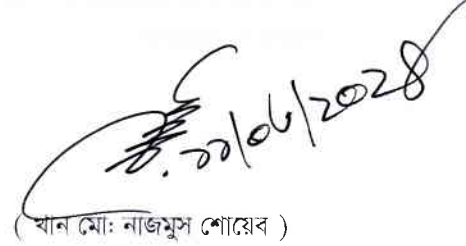 ১১/০৮/২০২৪
( খান মো: নাজমুস শোয়েব )